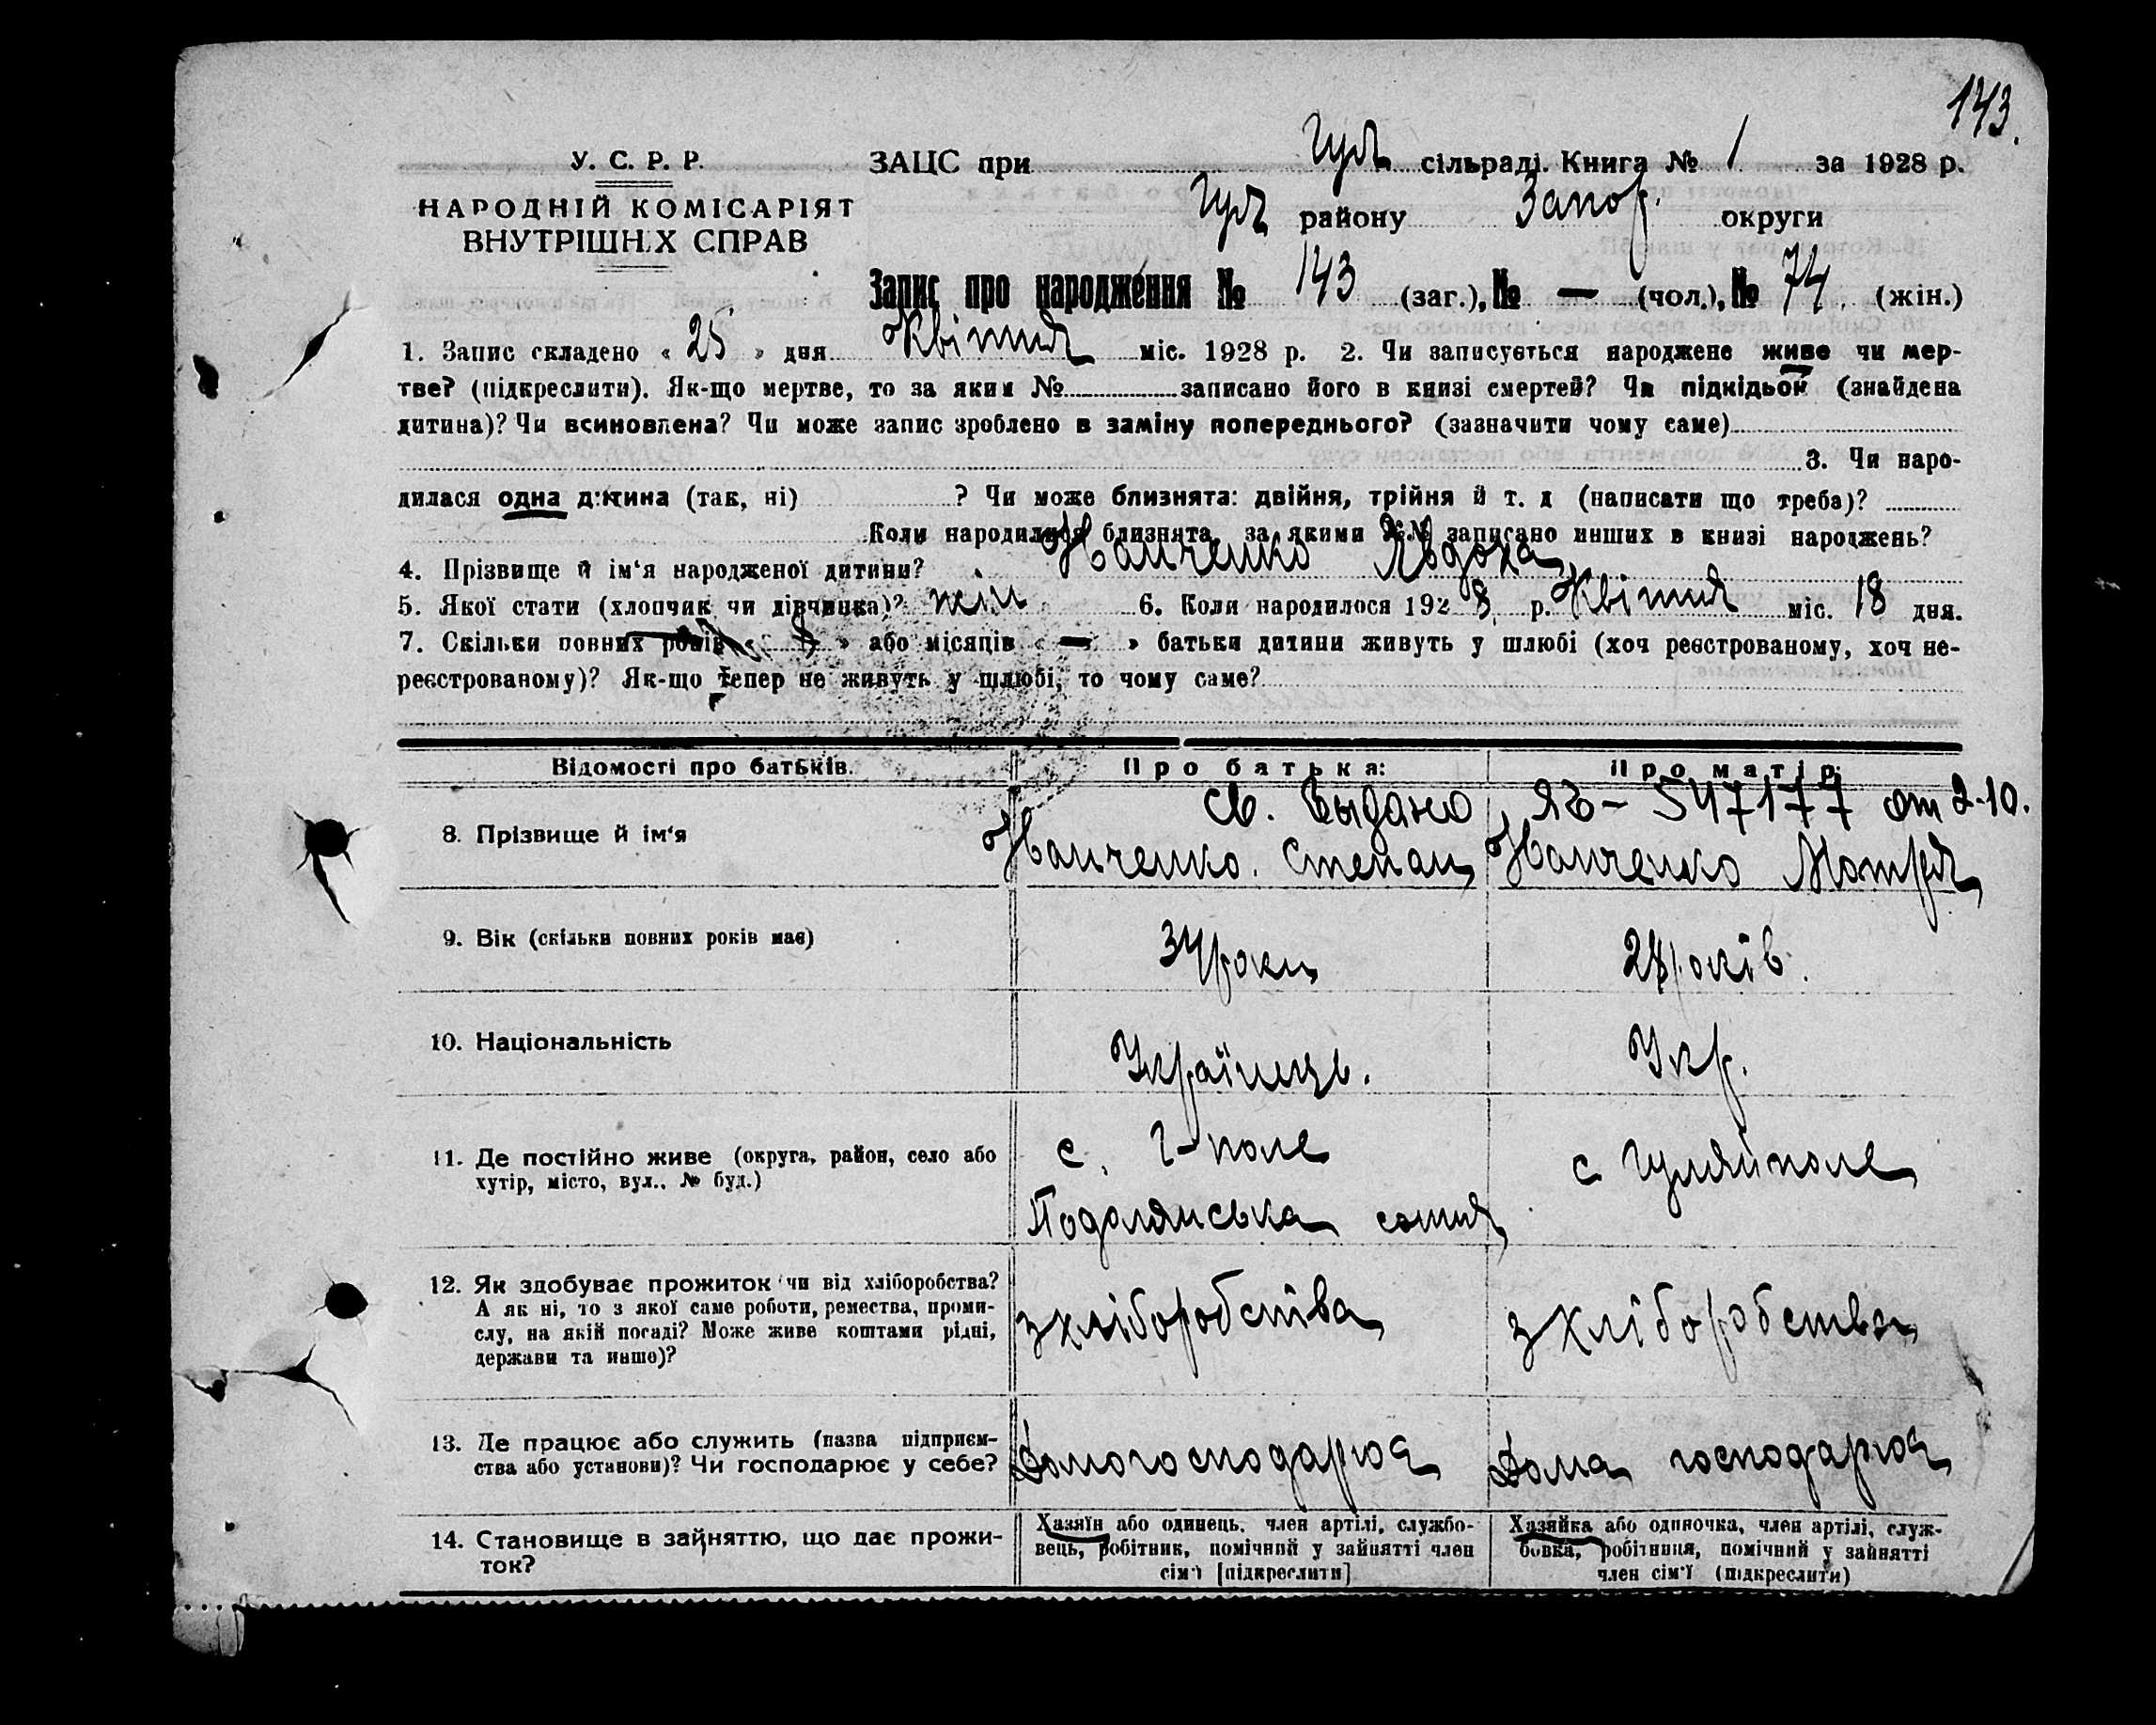 143.
У. С. Р. Р.
НАРОДНІЙ КОМІСАРІЯТ
ВНУТРІШНІХ СПРАВ
ЗАЦС при Гул сільраді. Книга № 1 за 1928 р.
Гул району Запор. округи
Запис про народження № 143 (заг.), № — (чол.), № 74 (жін.)
1. Запис складено « 25 » дня Квітня міс. 1928 р. 2. Чи записується народжене живе чи мер-
тве? (підкреслити). Як-що мертве, то за яким № записано його в книзі смертей? Чи підкідьок (знайдена
дитина)? Чи всиновлена? Чи може запис зроблено в заміну попереднього? (зазначити чому саме)
3. Чи наро-
дилася одна дитина (так, ні) ? Чи може близнята: двійня, трійня й т. д (написати що треба)?
Коли народилися близнята, за якими №№ записано инших в книзі народжень?
4. Прізвище й ім‘я народженої дитини? Іванченко Явдоха
5. Якої стати (хлопчик чи дівчинка)? жін 6. Коли народилося 1928 р. Квітня міс. 18 дня.
7. Скільки повних років « 8 » або місяців « — » батьки дитини живуть у шлюбі (хоч реєстрованому, хоч не-
реєстрованому)? Як-що тепер не живуть у шлюбі, то чому саме?
Відомості про батьків. Про батька: Про матір:
св. выдано ЯБ – 547177 от 2-10.
8. Прізвище й ім‘я Іванченко. Степан Іванченко Мотря
9. Вік (скільки повних років має) 34 роки 28 років.
10. Національність Українець. Укр.
11. Де постійно живе (округа, район, село або с. Г-поле с Гуляйполе
хутір, місто, вул., № буд.) Подолянська сотня
12. Як здобуває прожиток чи від хліборобства?
А як ні, то з якої саме роботи, ремества, проми-
слу, на якій посаді? Може живе коштами рідні, з хліборобства з хліборобства
держави та инше)?
13. Де працює або служить (назва підприєм-
ства або установи)? Чи господарює у себе? Домогосподарює Дома господарює
14. Становище в зайняттю, що дає прожи-
ток?
Хазяїн або одинець, член артілі, службо-
вець, робітник, помічний у зайнятті член
сім'ї [підкреслити]
Хазяйка або одиночка, член артілі, служ-
бовка, робітниця, помічний у зайнятті
член сім'ї (підкреслити)